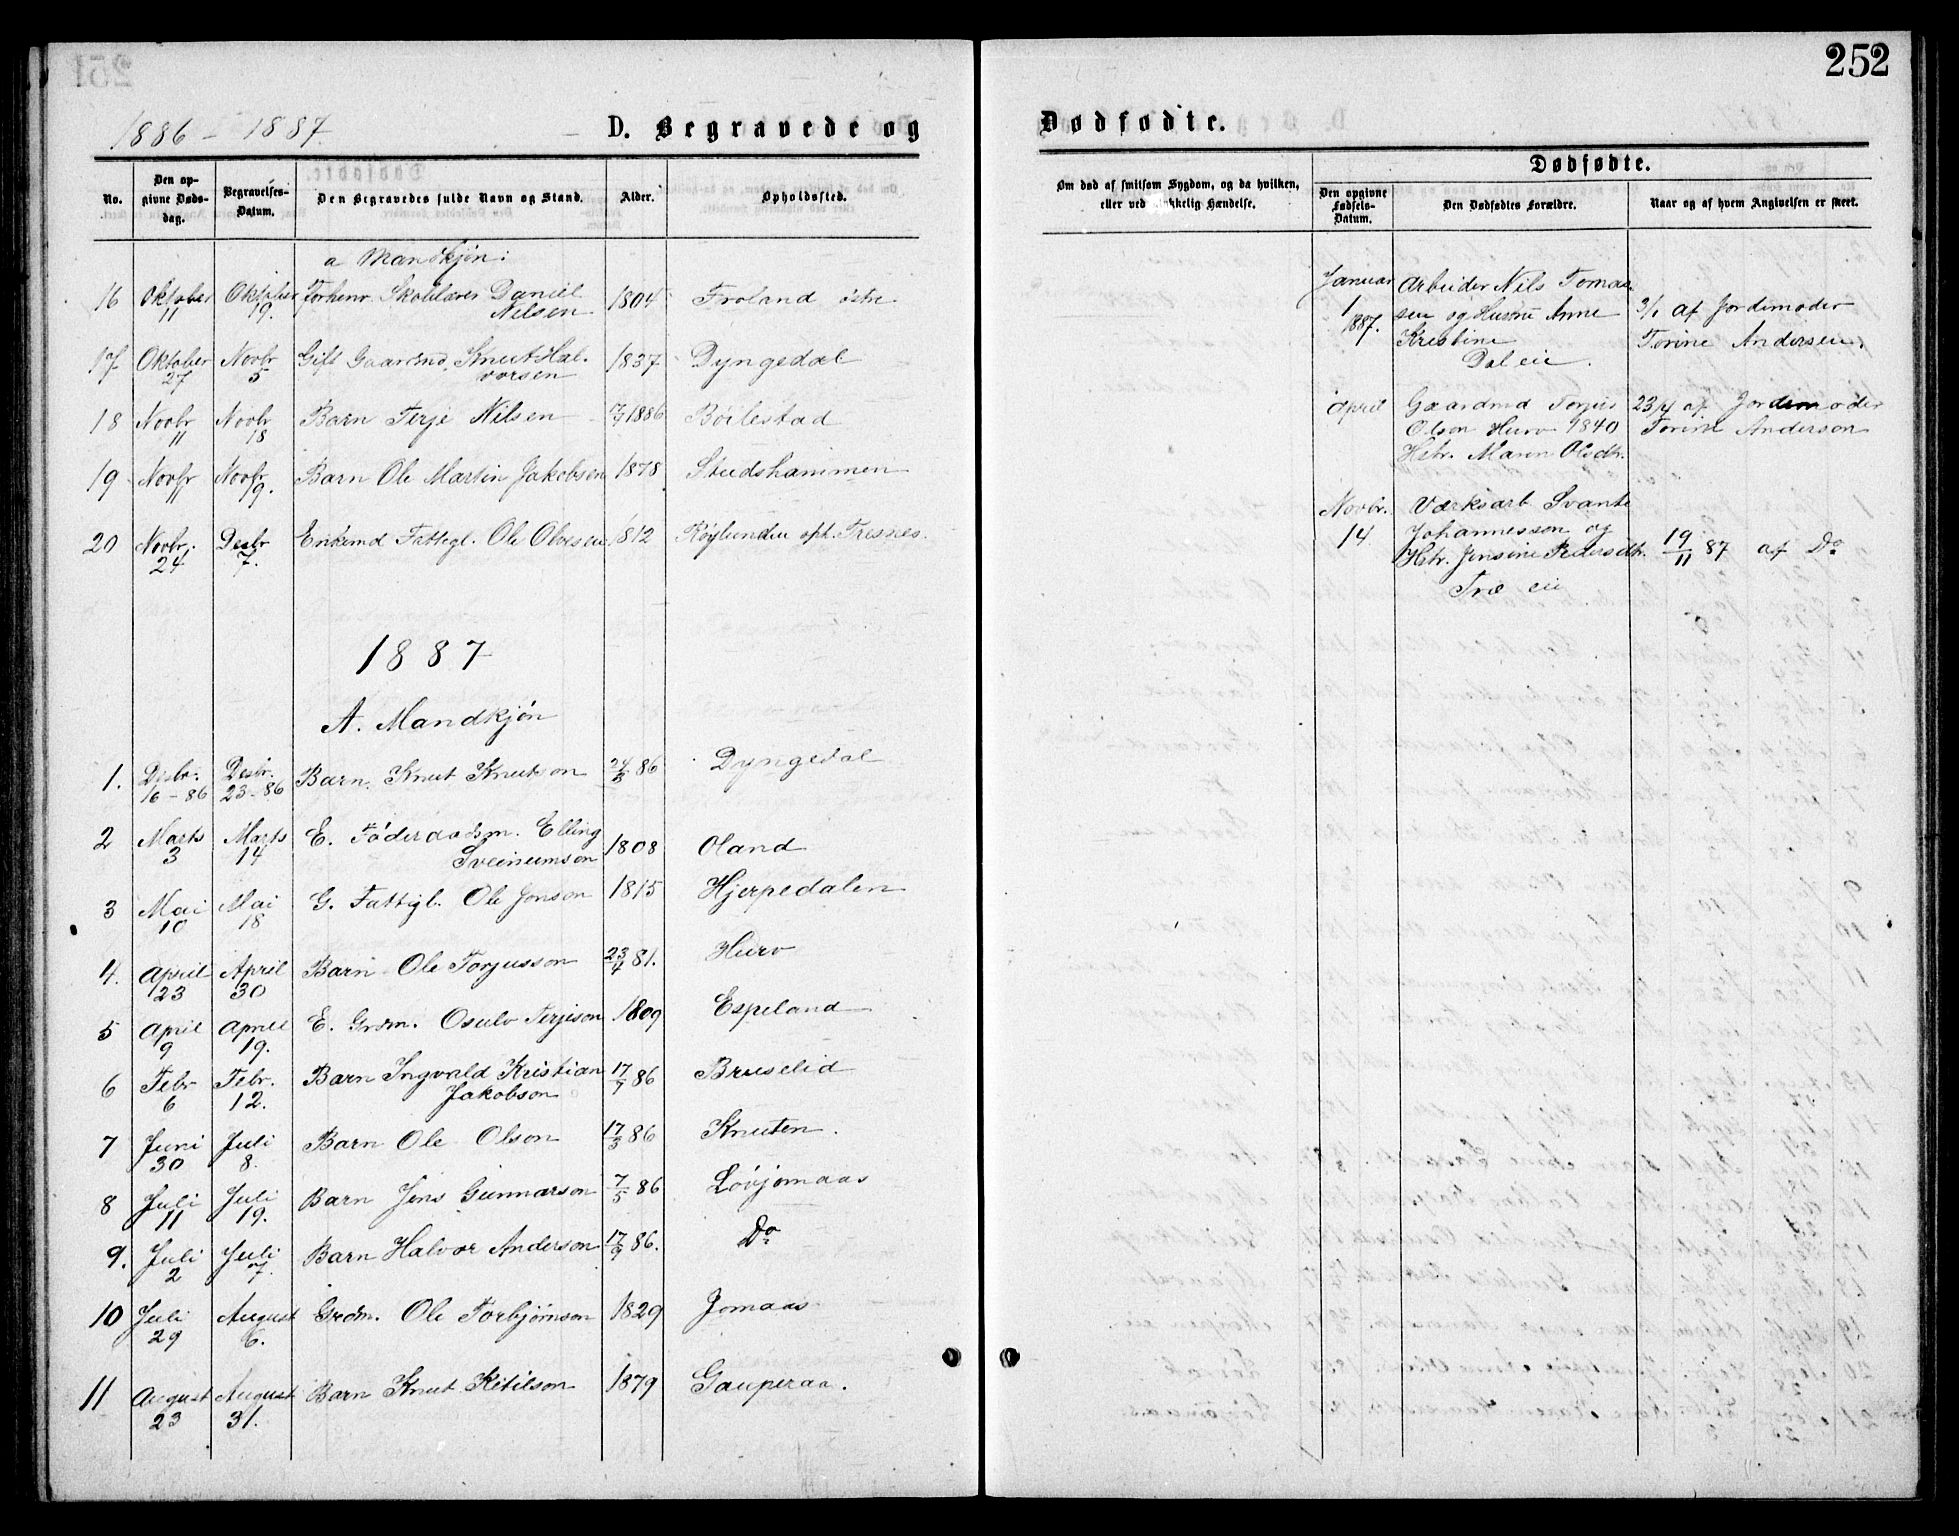 252
1886 - 1887
D. Begravede og
Dødfødte.
No.
Den opgivne Dødsdag.
Begravelses-Datum.
Den Begravedes fulde Navn og Stand.
Alder.
Opholdssted.
Om død af smitsom Sygdom, og da hvilken, eller ved ulykkelig Hændelse.
Dødfødte.
Den opgivne Fødsels-Datum.
Den Dødfødtes Forældre.
Naar og af hvem Angivelsen er skeet.
a Mandkjøn:
16 Oktober 11 Oktober 19. Forhenv. Skolelærer Daniel Nilsen 1804 Froland østre
17 Oktober 27 Novbr 5 Gift Gaardmd. Knut Halvorsen 1837 Dyngedal
18 Novbr 11 Novbr 18 Barn Terje Nilsen 1886 Bøilestad
19 Novbr 11 Novbr 19. Barn Ole Martin Jakobsen 1878 Studshammen
20 Novbr. 24 Desbr 7. Enkemd Fattigl. Ole Olvesen 1812
1887
A. Mandkjøn
1. Desbr. 16-86 Desbr. 23-86 Barn. Knut Knutson 86 Dyngedal
2 Marts 3 Marts 14 E. Föderaadsm. Elling Sveinumson 1808 Oland
3 Mai 10 Mai 18 G. Fattigl. Ole Jonson 1815 Hjerpedalen
4. April 23 April 30 Barn Ole Torjusson 23/4 81. Hurv
5 April 9 April 19. E. Grdm. Osulv Terjeson 1809 Espeland
6 Febr 6 Febr. 12. Barn Ingvald Kristian Jakobson 17/7 86 Bruselid
7 Juni 30 Juli 8. Barn Ole Olson 17/3 86 Knuten.
8 Juli 11 Juli 19. Barn Jens Gunnarson 7/5 86 Løvjomaas
9. Juli 2 Juli 7. Barn Halvor Anderson 17/9 86. Do
10 Juli 29 August 6. Grdm. Ole Torbjørnson 1829 Jomaas
11 August 23 August 31. Barn Knut Kitilson 1879 Gauperaa.
Januar 1 1887. Arbeider Nils Tomassen og Hustru Anne Kristine Dal eie. 3/1 af Jordemoder Torine Andersen.
April Gaardmd Torjus Olson Hurv 1840 Hstr. Maren Olsdtr. 23/4 af Jordemoder Torine Anderson
Novbr. 14. Værksarb. Svante Johannesson og Hstr. Jensine Pedersdtr. Træ eie 19/11 87 af Do